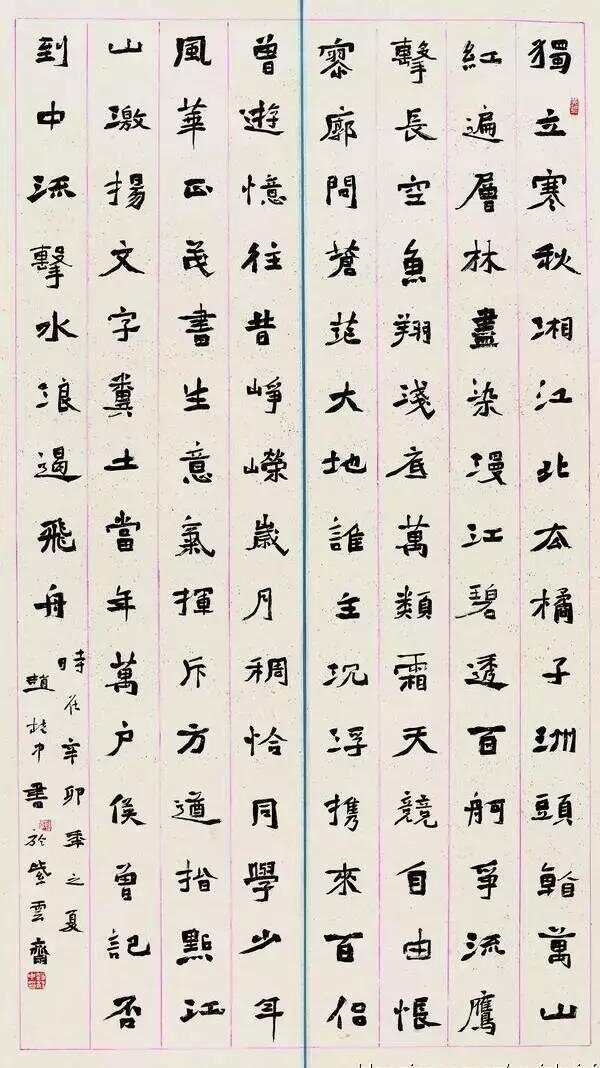 獨立寒秋湘江北去橘子洲頭看萬山
紅遍層林盡染漫江碧透百舸爭流鷹
擊長空魚翔淺底萬類霜天競自由悵
寥廓問蒼茫大地誰主沉浮携來百侶
曾遊憶往昔崢嶸歲月稠恰同學少年
風華正茂書生意氣揮斥方遒指點江
山激揚文字糞土當年萬戶侯曾記否
到中流擊水浪遏飛舟
時在辛卯年之夏
趙中書於紫雲齋